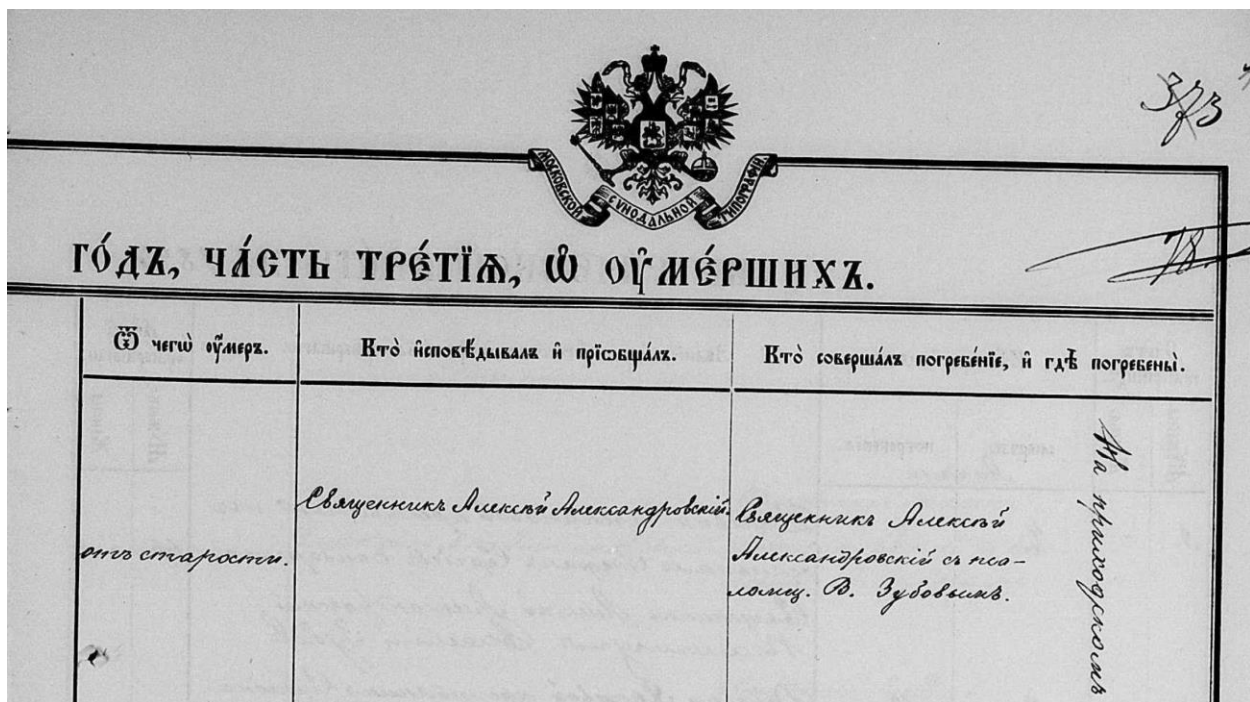 373
МОСКОВСКОЙ СѴНОДАЛЬНОЙ ТИПОГРАФІИ.
78.
го́дъ, ча́сть тре́тїѧ, ѡ҆ оу҆ме́ршихъ.
Ѿ чегѡ̀ оу҆́мер.
Кто̀ и҆сповѣ́дывалъ и҆ прїѡбща́лъ.
Кто̀ соверша́лъ погребе́нїе, и҆ гдѣ̀ погребены̀.
отъ старости.
Священникъ Алексѣй Александровскій.
Священникъ Алексѣй
Александровскій съ пса-
ломщ. В. Зубовымъ.
На приходскомъ